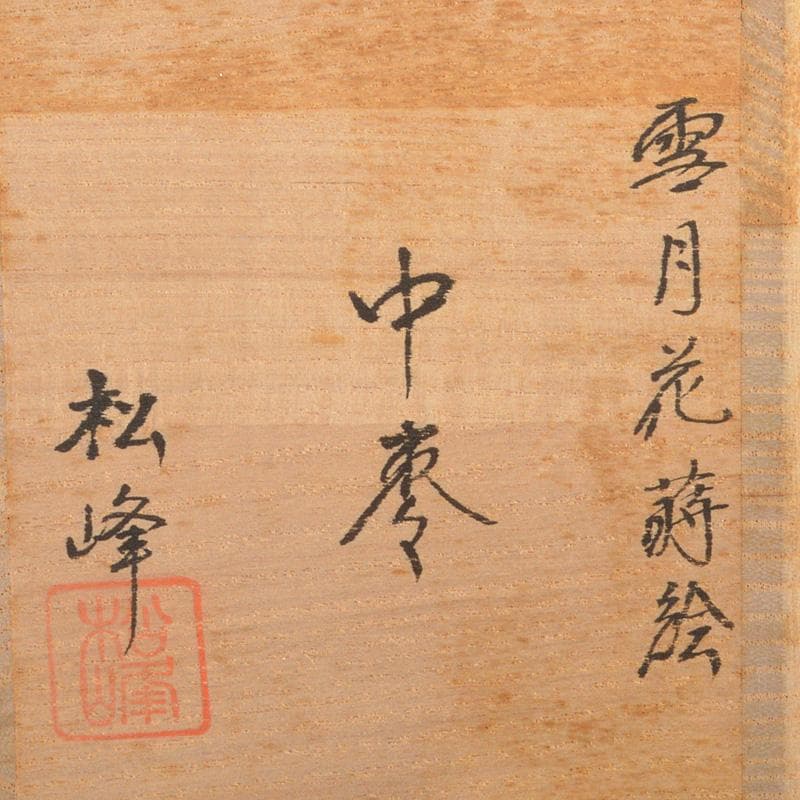 雪月花蒔絵
中棗
松峰
松峰